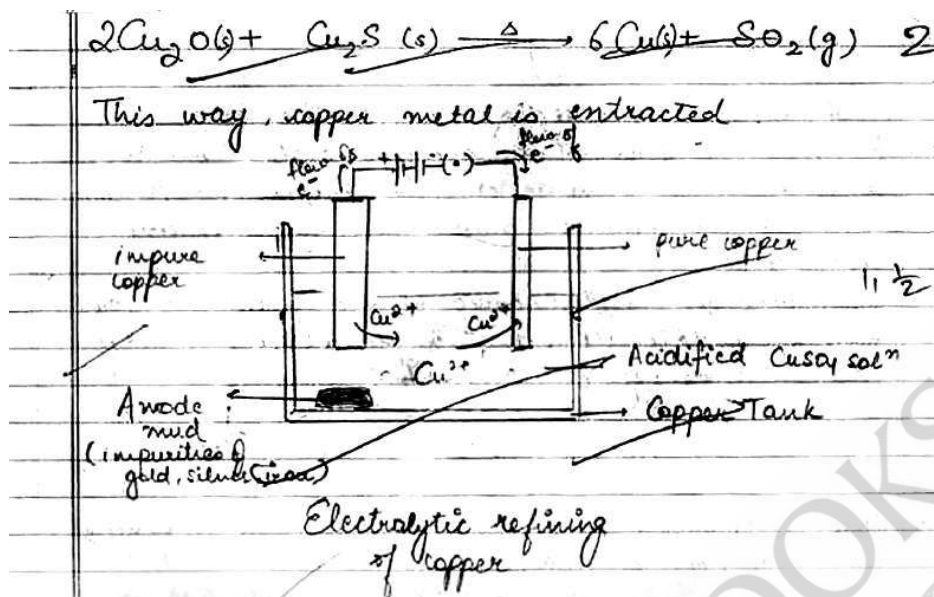 2Cu₂O(s) + Cu₂S (s) —Δ→ 6Cu(s) + SO₂(g) 2
This way, copper metal is extracted.
flow of e⁻
+ - (•)
flow of e⁻
impure copper
pure copper
1, 1/2
Cu²⁺
Cu²⁺
Cu²⁺
Acidified CuSO₄ solⁿ
Anode mud
(impurities of gold, silver (iron)
Copper Tank
Electralytic refining
of copper
OOKS